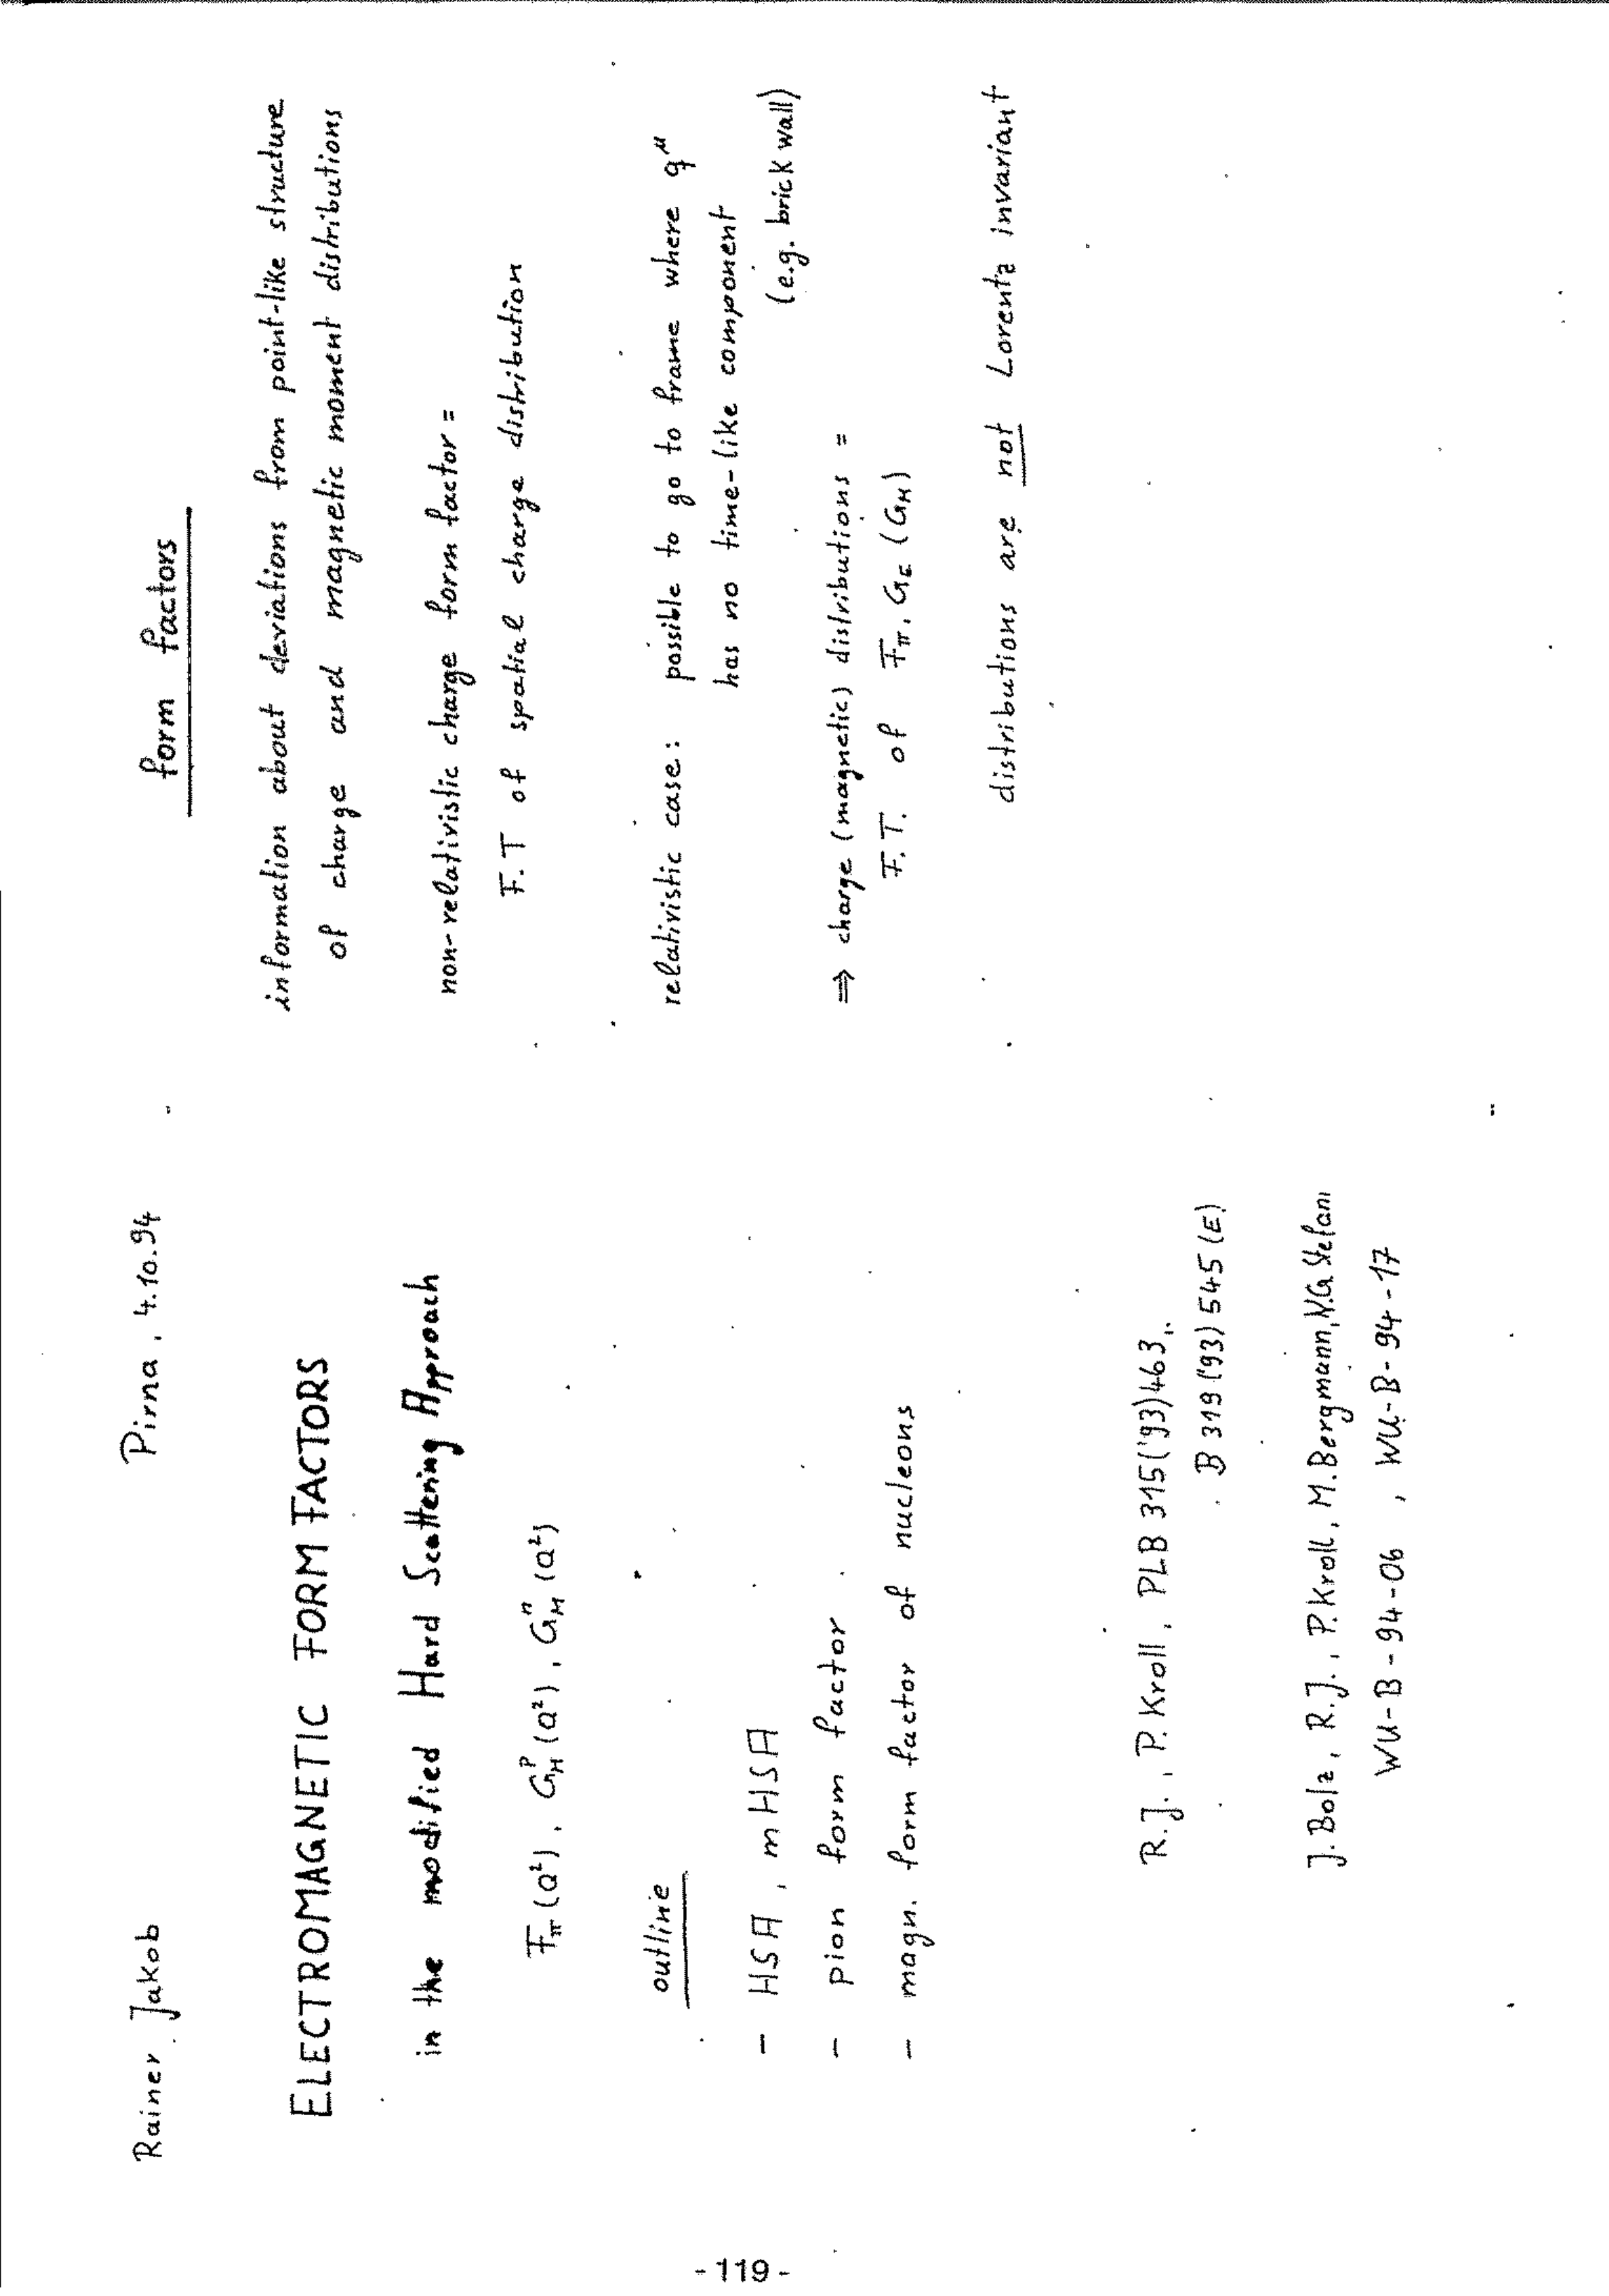 Rainer Jakob
Pirna, 4.10.94
ELECTROMAGNETIC FORM FACTORS
in the modified Hard Scattering Approach
Fπ(Q²), G_M^P(Q²), G_M^n(Q²)
outline
- HSA, mHSA
- pion form factor
- magn. form factor of nucleons
R.J., P.Kroll, PLB 315('93)463,
B 319('93)545(E)
J.Bolz, R.J., P.Kroll, M.Bergmann, N.G.Stefani
WU-B-94-06, WU-B-94-17
form factors
information about deviations from point-like structure
of charge and magnetic moment distributions
non-relativistic charge form factor =
F.T of spatial charge distribution
relativistic case: possible to go to frame where q^μ
has no time-like component
(e.g. brick wall)
⇒ charge (magnetic) distributions =
F.T. of Fπ, G_E (G_M)
distributions are not Lorentz invariant
- 119 -